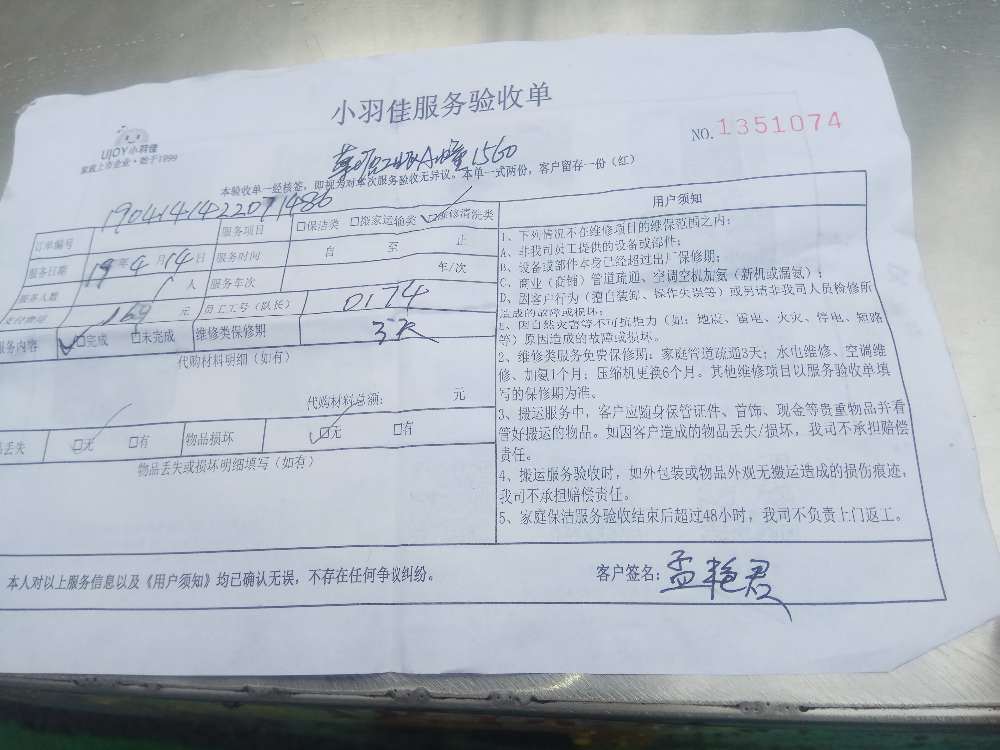 小羽佳服务验收单
UJOY小羽佳
家庭上市企业·始于1999
NO.1351074
A 1560
本验收单一经核签，即视为对本次服务验收无异议。本单一式两份，客户留存一份（红）
订单编号 1904141422071486 服务项目 □保洁类 □搬家运输类 ☑维修清洗类
服务日期 19年4月14日 服务时间 自 至 止
服务人数 人 服务年次 年/次
支付费用 169 元 员工工号（队长） 0174
服务内容 ☑完成 □未完成 维修类保修期 3天
代购材料明细（如有）
代购材料总额： 元
品丢失 ☑无 □有 物品损坏 ☑无 □有
物品丢失或损坏明细填写（如有）
用户须知
1、下列情况不在维修项目的维保范围之内：
A、非我司员工提供的设备或部件；
B、设备或部件本身已经超过出厂保修期；
C、商业（商铺）管道疏通、空调空机加氨（新机或漏氨）；
D、因客户行为（独自装卸、操作失误等）或另请非我司人员检修所
造成的故障或损坏；
E、因自然灾害等不可抗拒力（如：地震、雷电、火灾、停电、短路
等）原因造成的故障或损坏。
2、维修类服务免费保修期：家庭管道疏通3天；水电维修、空调维
修、加氨1个月；压缩机更换6个月。其他维修项目以服务验收单填
写的保修期为准。
3、搬运服务中，客户应随身保管证件、首饰、现金等贵重物品并看
管好搬运的物品。如因客户造成的物品丢失/损坏，我司不承担赔偿
责任。
4、搬运服务验收时，如外包装或物品外观无搬运造成的损伤痕迹，
我司不承担赔偿责任。
5、家庭保洁服务验收结束后超过48小时，我司不负责上门返工。
本人对以上服务信息以及《用户须知》均已确认无误，不存在任何争议纠纷。
客户签名：孟艳君